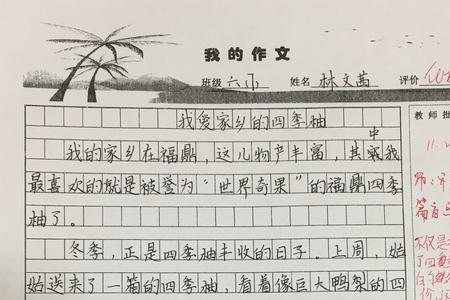 我的作文
班级 六 姓名 林文茜 评价
我爱家乡的四季柚
教师批
我的家乡在福鼎,这儿物产丰富,其中我
最喜欢的就是被誉为“世界奇果”的福鼎四季
柚了。
冬季,正是四季柚丰收的日子。上周,婶
婶送来了一篮的四季柚,看着像巨大鸭梨的四